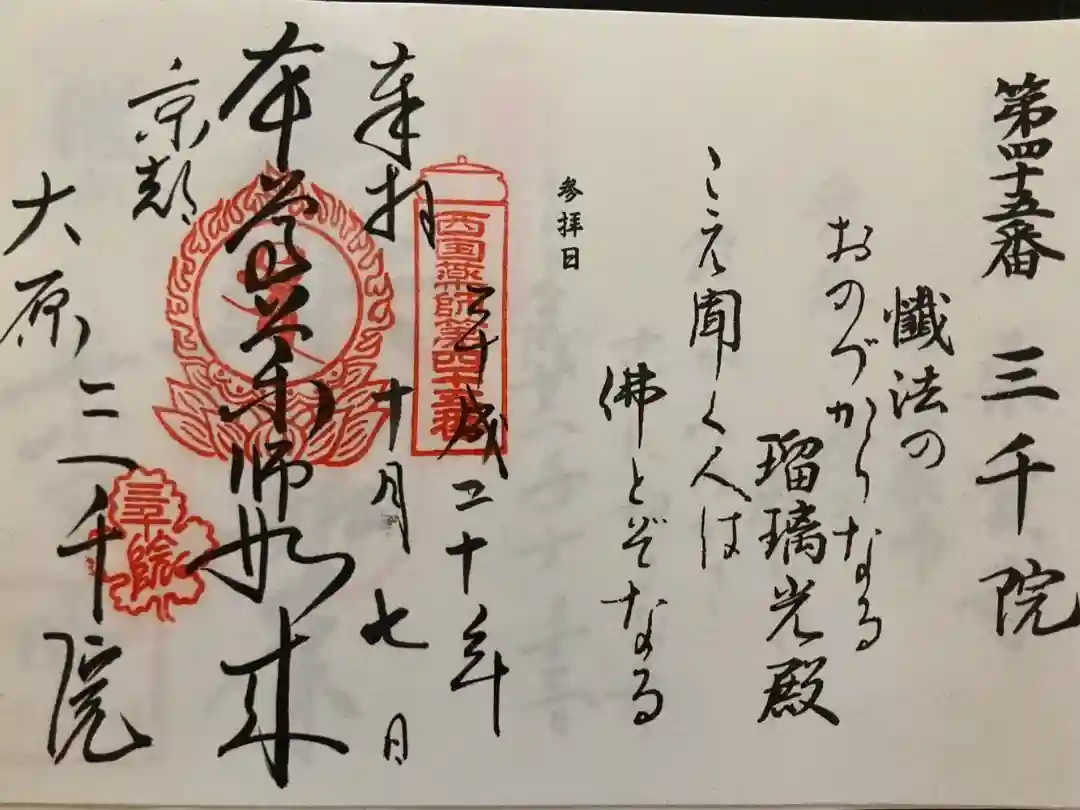 第四十五番 三千院
懺法の
おのづからなる
瑠璃光殿
こえ聞く人は
佛とぞなる
参拝日
西国薬師第四十五番
平成二十年
奉拝
十月七日
本尊薬師如来
京都
大原三千院
三千院